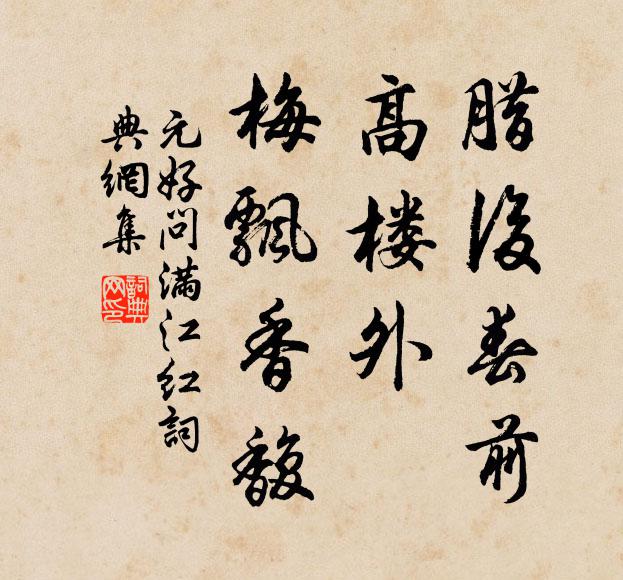 腊後春前
高楼外
梅飄香馥
元好问满江红詞
典網集
詞典網印